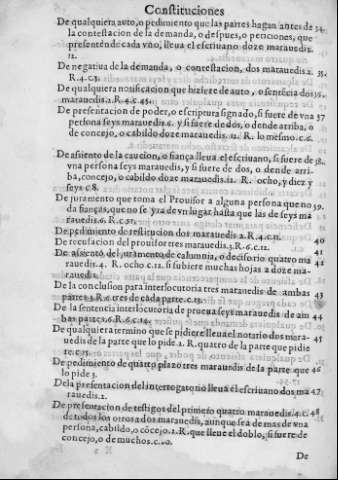 Constituciones
De qualquiera auto, o pedimiento que las partes hagan antes de 34.
la contestacion de la demanda, o despues, o peticiones, que
presentẽ de cada vno, lleua el escriuano doze marauedis.
12.
De negatiua de la demanda, o contestacion, dos marauedis. 2. 35.
R. 4. c. 3.
De qualquiera notificacion que hiziere de auto, o sentẽcia dos 36.
marauedis. 2. R. 4. c. 45.
De presentacion de poder, o escriptura signado, si fuere de vna 37
persona seys marauedis. 6. y si fuere de dos, o dende arriba, o
de concejo, o cabildo doze marauedis. 12. R. lo mesmo. c. 6.
De assiento de la caucion, o fiança lleua el escriuano, si fuere de 38.
vna persona seys marauedis, y si fuere de dos, o dende arri-
ba, concejo, o cabildo doze marauedis. 12. R. ocho, y diez y
seys c. 8.
De juramento que toma el Prouisor a alguna persona que no 39.
da fianças, que no se yra de vn lugar hasta que las de seys ma
rauedis. 6. R. c. 51.
De pedimiento de restitucion dos marauedis 2. R. 4. c. 11. 40
De recusacion del prouisor tres marauedis. 3. R. 6. c. 12. 41
De assiento del juramento de calumnia, o decisorio quatro ma 42
rauedis. 4. R. ocho c. 12. si subiere muchas hojas a doze ma-
rauedis.
De la conclusion para interlocutoria tres marauedis de ambas 43
partes 3. R. tres de cada parte. c. 13.
De la sentencia interlocutoria de prueua seys marauedis de am 44
bas partes. 6. R. 6. c. 14.
De qualquiera termino que se pidiere lleua el notario dos mara- 45
uedis de la parte que lo pide. 2. R. quatro de la parte que pidie
re. c. 15.
De pedimiento de quarto plazo tres marauedis de la parte que 46
lo pide 3.
De la presentacion del interrogatorio lleua el escriuano dos ma 47
rauedis. 2.
De presentacion de testigos del primero quatro marauedis. 4. c. 48
de todos los otros a dos marauedis, aunque sea de mas de vna
persona, cabildo, o cõcejo. 2. R. que lleue el doblo, si fuere de
concejo, o de muchos. c. 20.
De